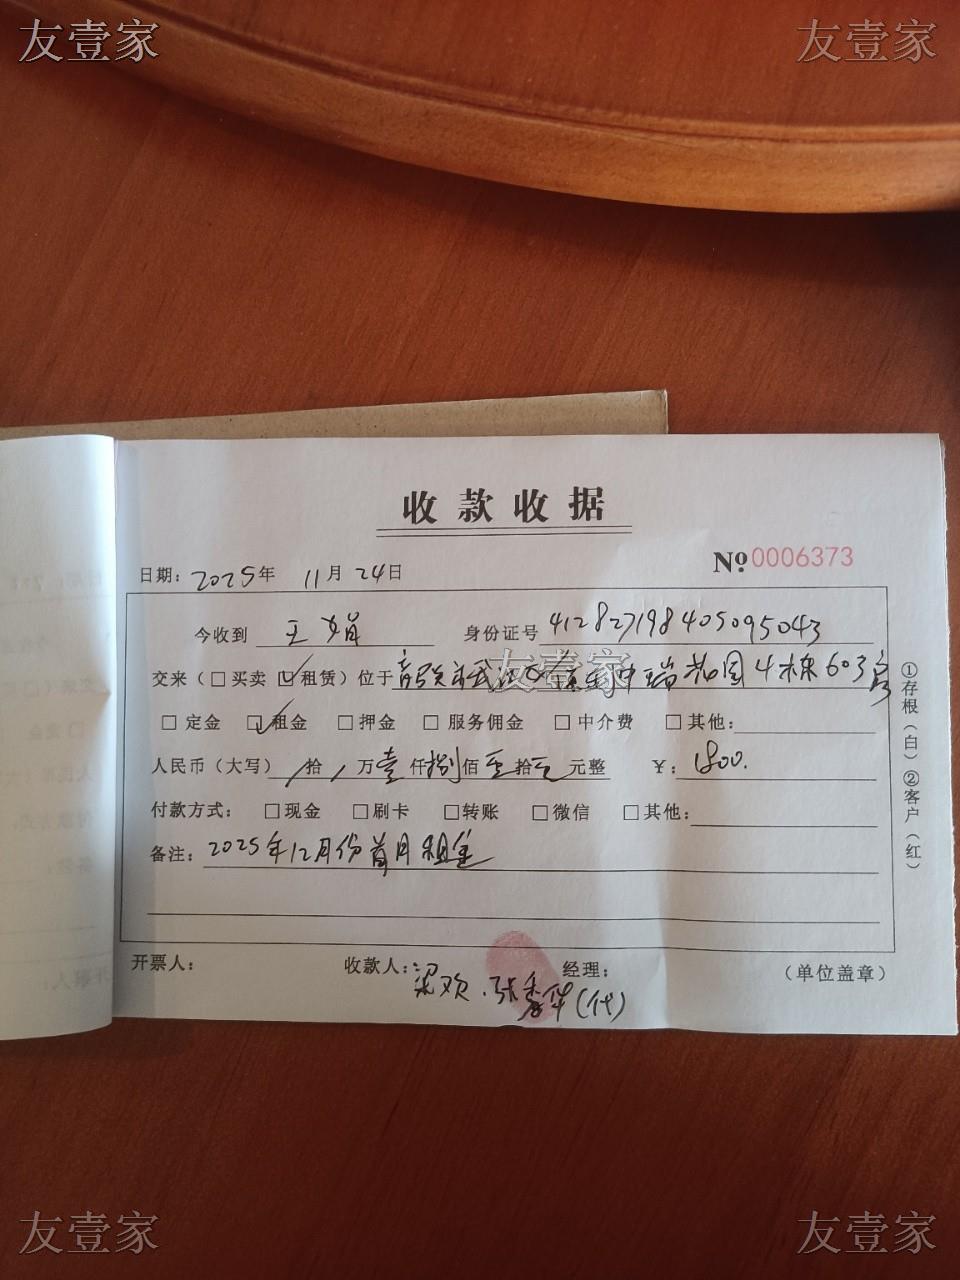 友壹家 友壹家
收款收据
№0006373
日期：2025年 11月 24日
今收到 王娟 身份证号 412827198405095043
交来（□买卖 ☑租赁）位于 友壹家 中瑞花园4栋603房
□定金 ☑租金 □押金 □服务佣金 □中介费 □其他：
人民币（大写） / 拾 / 万壹仟捌佰 拾元整 ¥：1800.
付款方式：□现金 □刷卡 □转账 □微信 □其他：
备注：2025年12月份首月租金
开票人： 收款人：梁欢、张秀华(代) 经理： （单位盖章）
①存根（白）②客户（红）
友壹家 友壹家